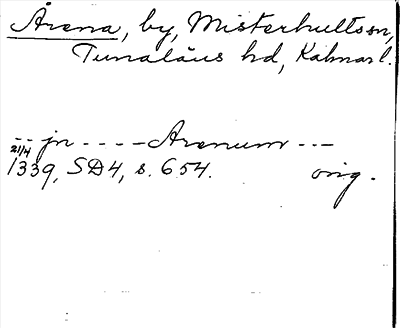 Årena, by, Misterhults sn,
Tunaläns hd, Kalmar l.
-- jn ---- Arenum ---
21/4
1339, SD4, s. 654. orig.